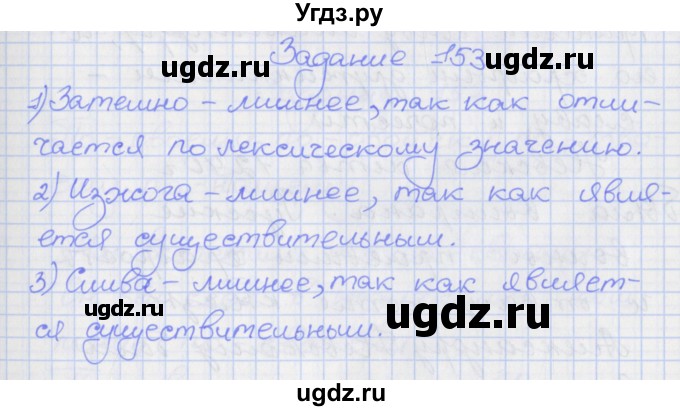 Угдз.ру
Задание 153
1) Затемно - лишнее, так как отли-
чается по лексическому значению.
2) Изжога - лишнее, так как явля-
ется существительным.
3) Слива - лишнее, так как являет-
ся существительным.
ugdz.ru
ugdz.ru
ugdz.ru
ugdz.ru
ugdz.ru
ugdz.ru